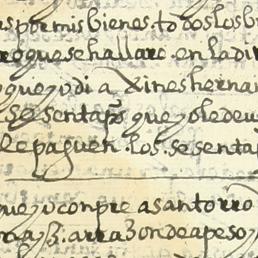 as por mis bienes todos los b
ro que se hallare en la di
que yo di a xines hernan
sesenta p͠s que yo le deu
le paguen los sesenta
que yo conpre a santorro
a razon de a peso y